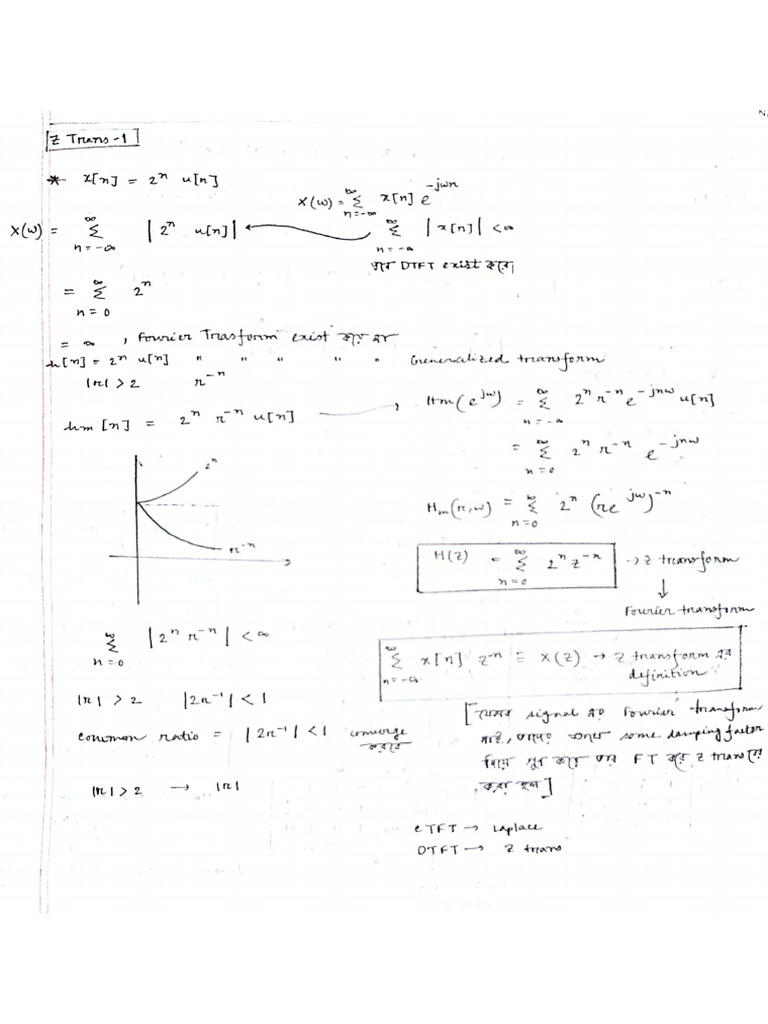 Z Trans-1
* x[n] = 2^n u[n]
X(w) = Σ_{n=-∞}^{∞} x[n] e^{-jwn}
X(w) = Σ_{n=-∞}^{∞} |2^n u[n]| ← Σ_{n=-∞}^{∞} |x[n]| < ∞
DTFT exist করে।
= Σ_{n=0}^{∞} 2^n
= ∞, Fourier Trasform exist করে না
h[n] = 2^n u[n] " " " " " Generalized transform
|r| > 2 r^{-n}
hm[n] = 2^n r^{-n} u[n] → Hm(e^{jw}) = Σ_{n=-∞}^{∞} 2^n r^{-n} e^{-jnw} u[n]
= Σ_{n=0}^{∞} 2^n r^{-n} e^{-jnw}
2^n
r^{-n}
H_m(r,w) = Σ_{n=0}^{∞} 2^n (re^{jw})^{-n}
H(z) = Σ_{n=0}^{∞} 2^n z^{-n} → Z transform
↓
Fourier transform
Σ_{n=0}^{∞} |2^n r^{-n}| < ∞
Σ_{n=-∞}^{∞} x[n] z^{-n} = X(z) → Z transform এর
definition
|r| > 2 |2r^{-1}| < 1
common ratio = |2r^{-1}| < 1 converge
করবে
|r| > 2 → |r|
[যেসব signal এর Fourier transform
নাই, some damping factor
দিয়ে গুণ করে তার FT Z trans
করা হল]
CTFT → Laplace
DTFT → Z trans